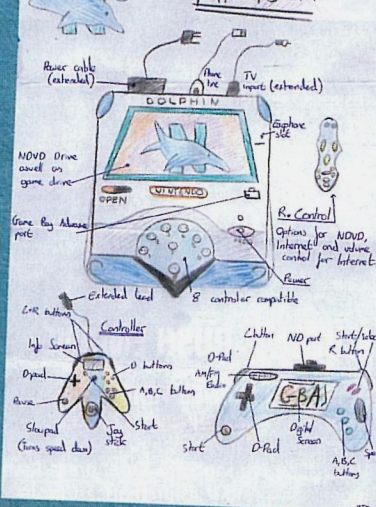 Power cable
(extended)
Phone
line
TV
Input (extended)
DOLPHIN
Earphone
slot
NDVD Drive
aswell as
game drive
OPEN
NINTENDO
Game Boy Advance
port
R. Control
Options for NDVD,
Internet and volume
control for Internet
Power
8 controller compatible
Extended lead
L+R buttons
Controller
Info Screen
D-pad
D buttons
A,B,C buttons
Pause
Slowpad
(turns speed down)
Joy
stick
Start
L button
ND port
Start/Select
R button
D-Pad
AM/FM
Radio
GBA
Start
D-Pad
Digital
Screen
A,B,C
buttons